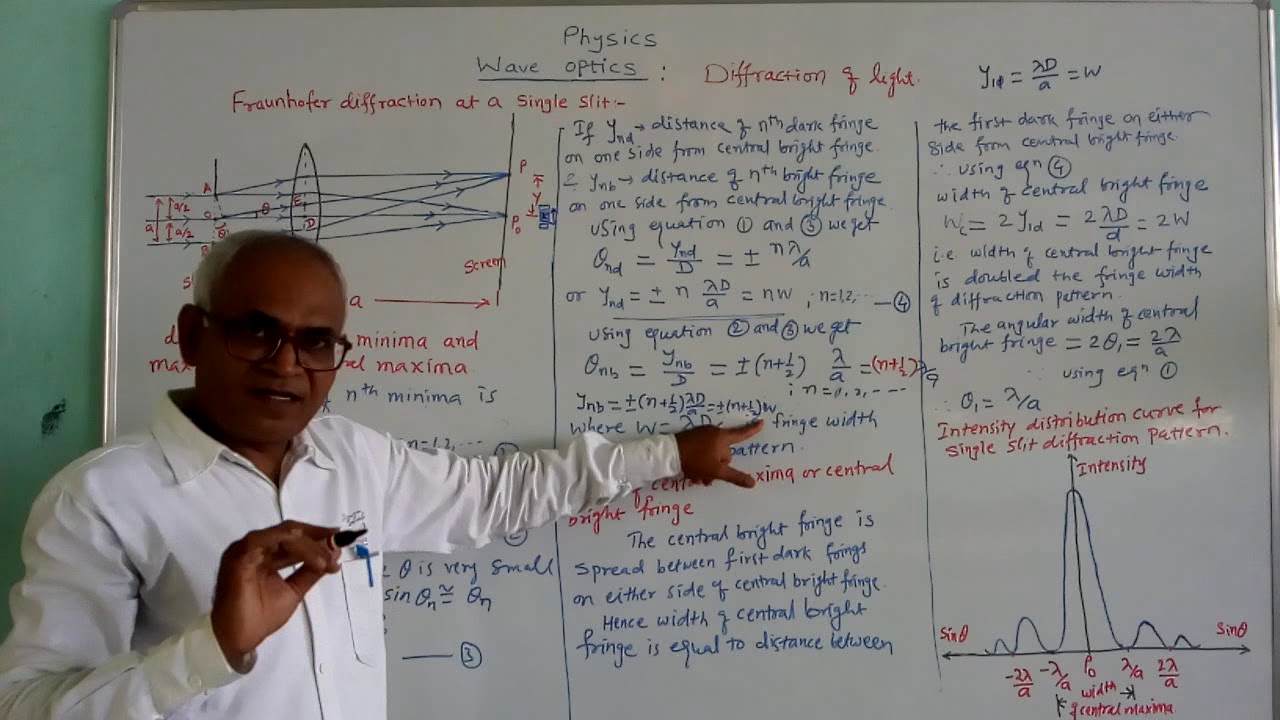 Physics
Wave optics : Diffraction of light.
Fraunhofer diffraction at a Single Slit:-
A
a/2
a
a/2
θ
E
D
P
Y
P₀
Screen
a
minima and
maxima
* nth minima is
n=1,2,...
θ is very small
sin θₙ ≅ θₙ
—— ③
If Ynd → distance of nth dark fringe
on one side from central bright fringe.
Ynb → distance of nth bright fringe
on one side from central bright fringe
using equation ① and ③ we get
θnd = Ynd/D = ± nλ/a
or Ynd = ± n λD/a = nW ; n=1,2,... —④
using equation ② and ③ we get
θnb = Ynb/D = ±(n+1/2) λ/a = (n+1/2)λ/a
; n=1,2,----
Ynb = ±(n+1/2)λD/a = ±(n+1/2)W
where W = λD fringe width
pattern.
of central maxima or central
bright fringe
The central bright fringe is
spread between first dark frings
on either side of central bright fringe.
Hence width of central bright
fringe is equal to distance between
Y1d = λD/a = W
the first dark fringe on either
side from central bright fringe.
∴ using eqn ④
width of central bright fringe
Wc = 2 Y1d = 2λD/d = 2W
i.e width of central bright fringe
is doubled the fringe width
of diffraction pattern.
The angular width of central
bright fringe = 2θ₁ = 2λ/a
∵ using eqn ①
∴ θ₁ = λ/a
Intensity distribution curve for
Single slit diffraction pattern.
Intensity
Sinθ
Sinθ
-2λ/a -λ/a P₀ λ/a 2λ/a
width
of central maxima